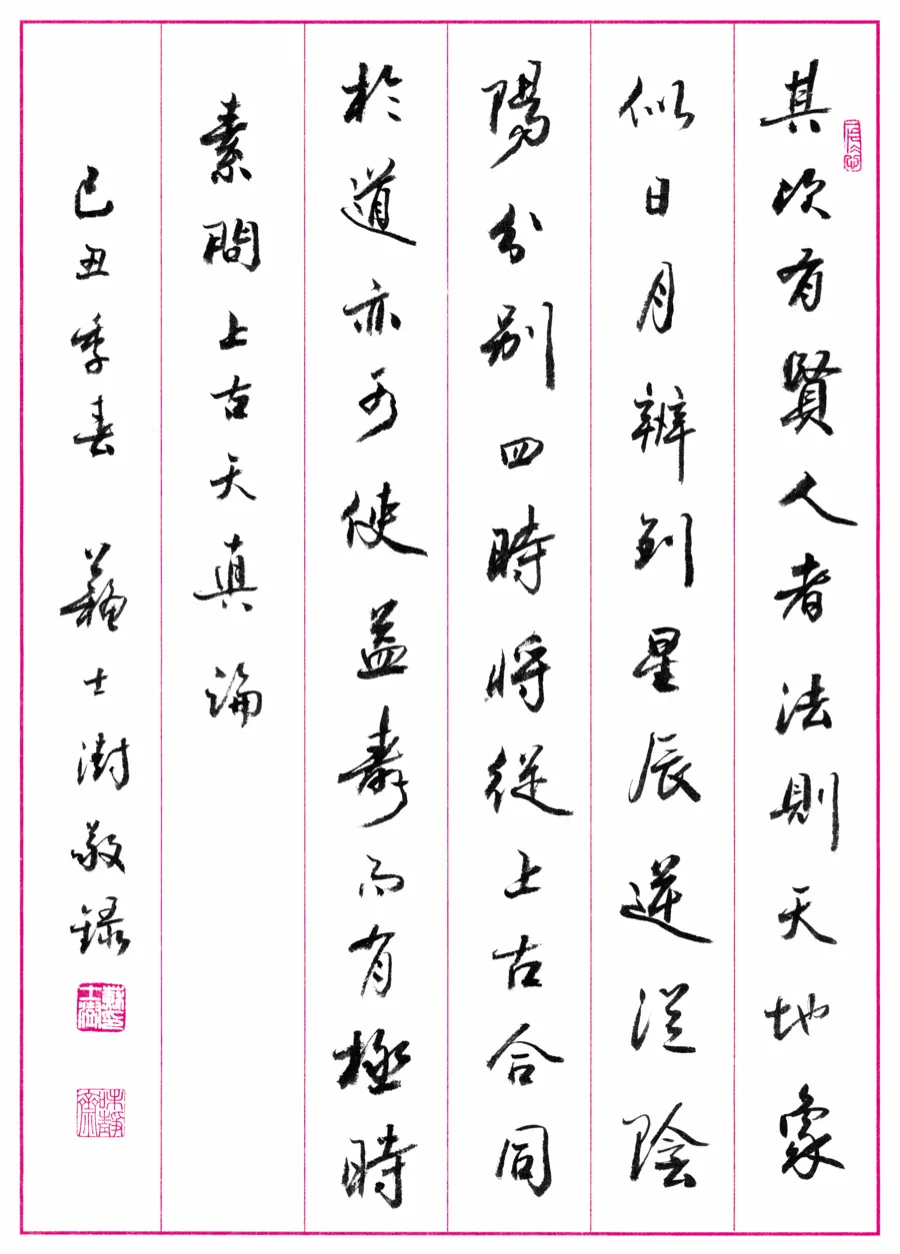 其次有賢人者法則天地象
似日月辨列星辰逆從陰
陽分別四時將從上古合同
於道亦可使益壽而有極時
素問上古天真論
己丑季春 蘇士澍敬錄